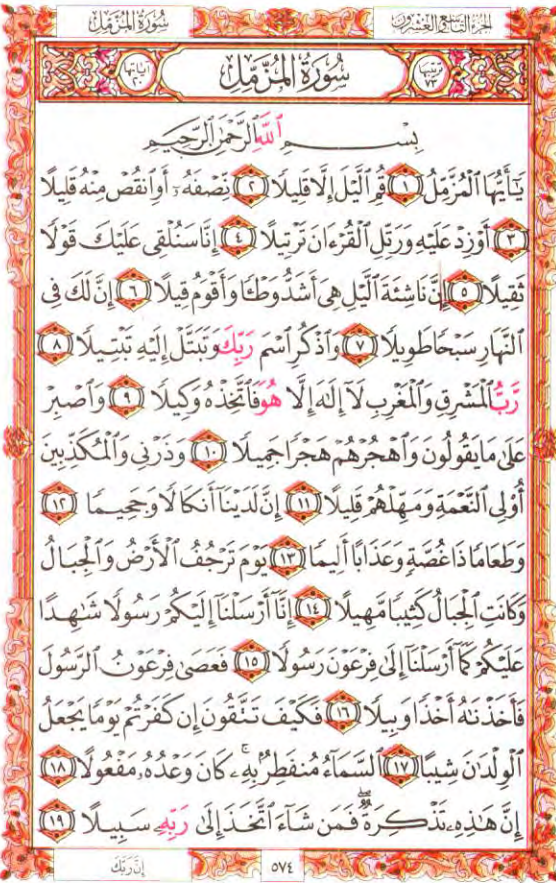 سُورَةُ المُزَّمِّل
الجزء التاسع والعشرون
ترتيبها ٧٣
سُورَةُ المُزَّمِّل
آياتها ٢٠
بِسْمِ ٱللَّهِ ٱلرَّحْمَٰنِ ٱلرَّحِيمِ
يَٰٓأَيُّهَا ٱلْمُزَّمِّلُ ١ قُمِ ٱلَّيْلَ إِلَّا قَلِيلًا ٢ نِّصْفَهُۥٓ أَوِ ٱنقُصْ مِنْهُ قَلِيلًا
٣ أَوْ زِدْ عَلَيْهِ وَرَتِّلِ ٱلْقُرْءَانَ تَرْتِيلًا ٤ إِنَّا سَنُلْقِى عَلَيْكَ قَوْلًا
ثَقِيلًا ٥ إِنَّ نَاشِئَةَ ٱلَّيْلِ هِىَ أَشَدُّ وَطْـًٔا وَأَقْوَمُ قِيلًا ٦ إِنَّ لَكَ فِى
ٱلنَّهَارِ سَبْحًا طَوِيلًا ٧ وَٱذْكُرِ ٱسْمَ رَبِّكَ وَتَبَتَّلْ إِلَيْهِ تَبْتِيلًا ٨
رَّبُّ ٱلْمَشْرِقِ وَٱلْمَغْرِبِ لَآ إِلَٰهَ إِلَّا هُوَ فَٱتَّخِذْهُ وَكِيلًا ٩ وَٱصْبِرْ
عَلَىٰ مَا يَقُولُونَ وَٱهْجُرْهُمْ هَجْرًا جَمِيلًا ١٠ وَذَرْنِى وَٱلْمُكَذِّبِينَ
أُو۟لِى ٱلنَّعْمَةِ وَمَهِّلْهُمْ قَلِيلًا ١١ إِنَّ لَدَيْنَآ أَنكَالًا وَجَحِيمًا ١٢
وَطَعَامًا ذَا غُصَّةٍ وَعَذَابًا أَلِيمًا ١٣ يَوْمَ تَرْجُفُ ٱلْأَرْضُ وَٱلْجِبَالُ
وَكَانَتِ ٱلْجِبَالُ كَثِيبًا مَّهِيلًا ١٤ إِنَّآ أَرْسَلْنَآ إِلَيْكُمْ رَسُولًا شَٰهِدًا
عَلَيْكُمْ كَمَآ أَرْسَلْنَآ إِلَىٰ فِرْعَوْنَ رَسُولًا ١٥ فَعَصَىٰ فِرْعَوْنُ ٱلرَّسُولَ
فَأَخَذْنَٰهُ أَخْذًا وَبِيلًا ١٦ فَكَيْفَ تَتَّقُونَ إِن كَفَرْتُمْ يَوْمًا يَجْعَلُ
ٱلْوِلْدَٰنَ شِيبًا ١٧ ٱلسَّمَآءُ مُنفَطِرٌۢ بِهِۦ ۚ كَانَ وَعْدُهُۥ مَفْعُولًا ١٨
إِنَّ هَٰذِهِۦ تَذْكِرَةٌ ۖ فَمَن شَآءَ ٱتَّخَذَ إِلَىٰ رَبِّهِۦ سَبِيلًا ١٩
٥٧٤
إِنَّ رَبَّكَ